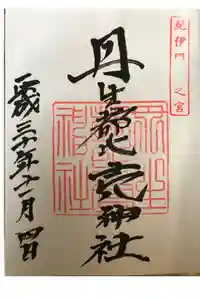 紀伊國一之宮
丹生都比売神社
平成三十年十一月四日